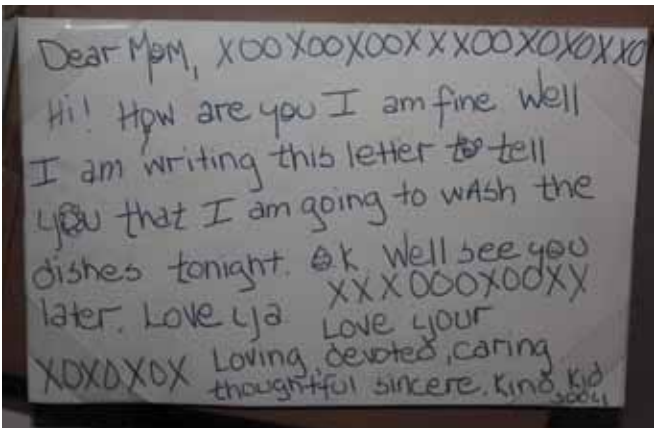 Dear Mom, XOOXOOXOOXXXOOXOXOXXO
Hi! How are you I am fine Well
I am writing this letter to tell
you that I am going to wash the
dishes tonight. Ok Well see you
XXXOOOXOOXX
later. Love ya Love your
XOXOXOX Loving, devoted, caring
thoughtful sincere, Kind Kid